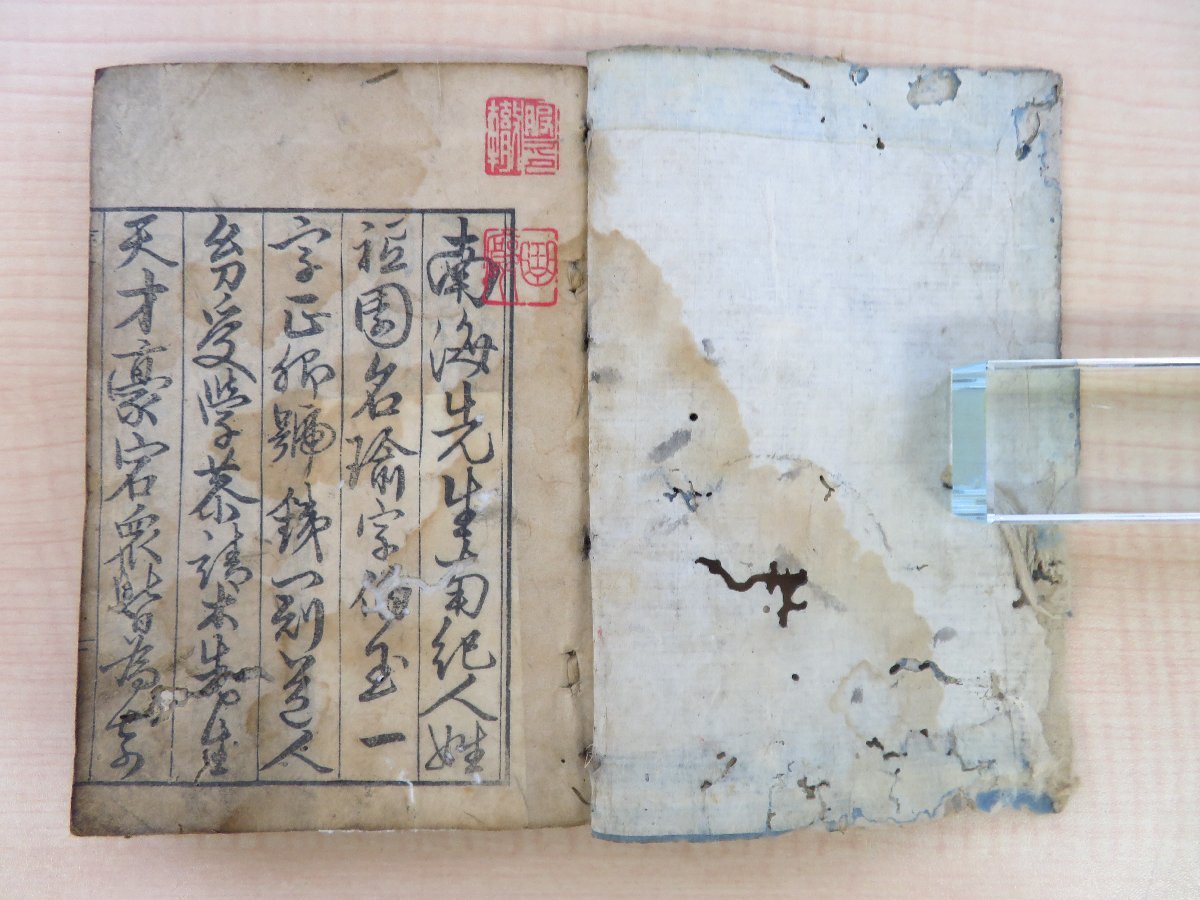 南海先生南紀人姓
祇園名瑜字伯玉一
字正卿號鐵冠道人
幼受學恭靖木先生
天才豪宕眾皆為奇